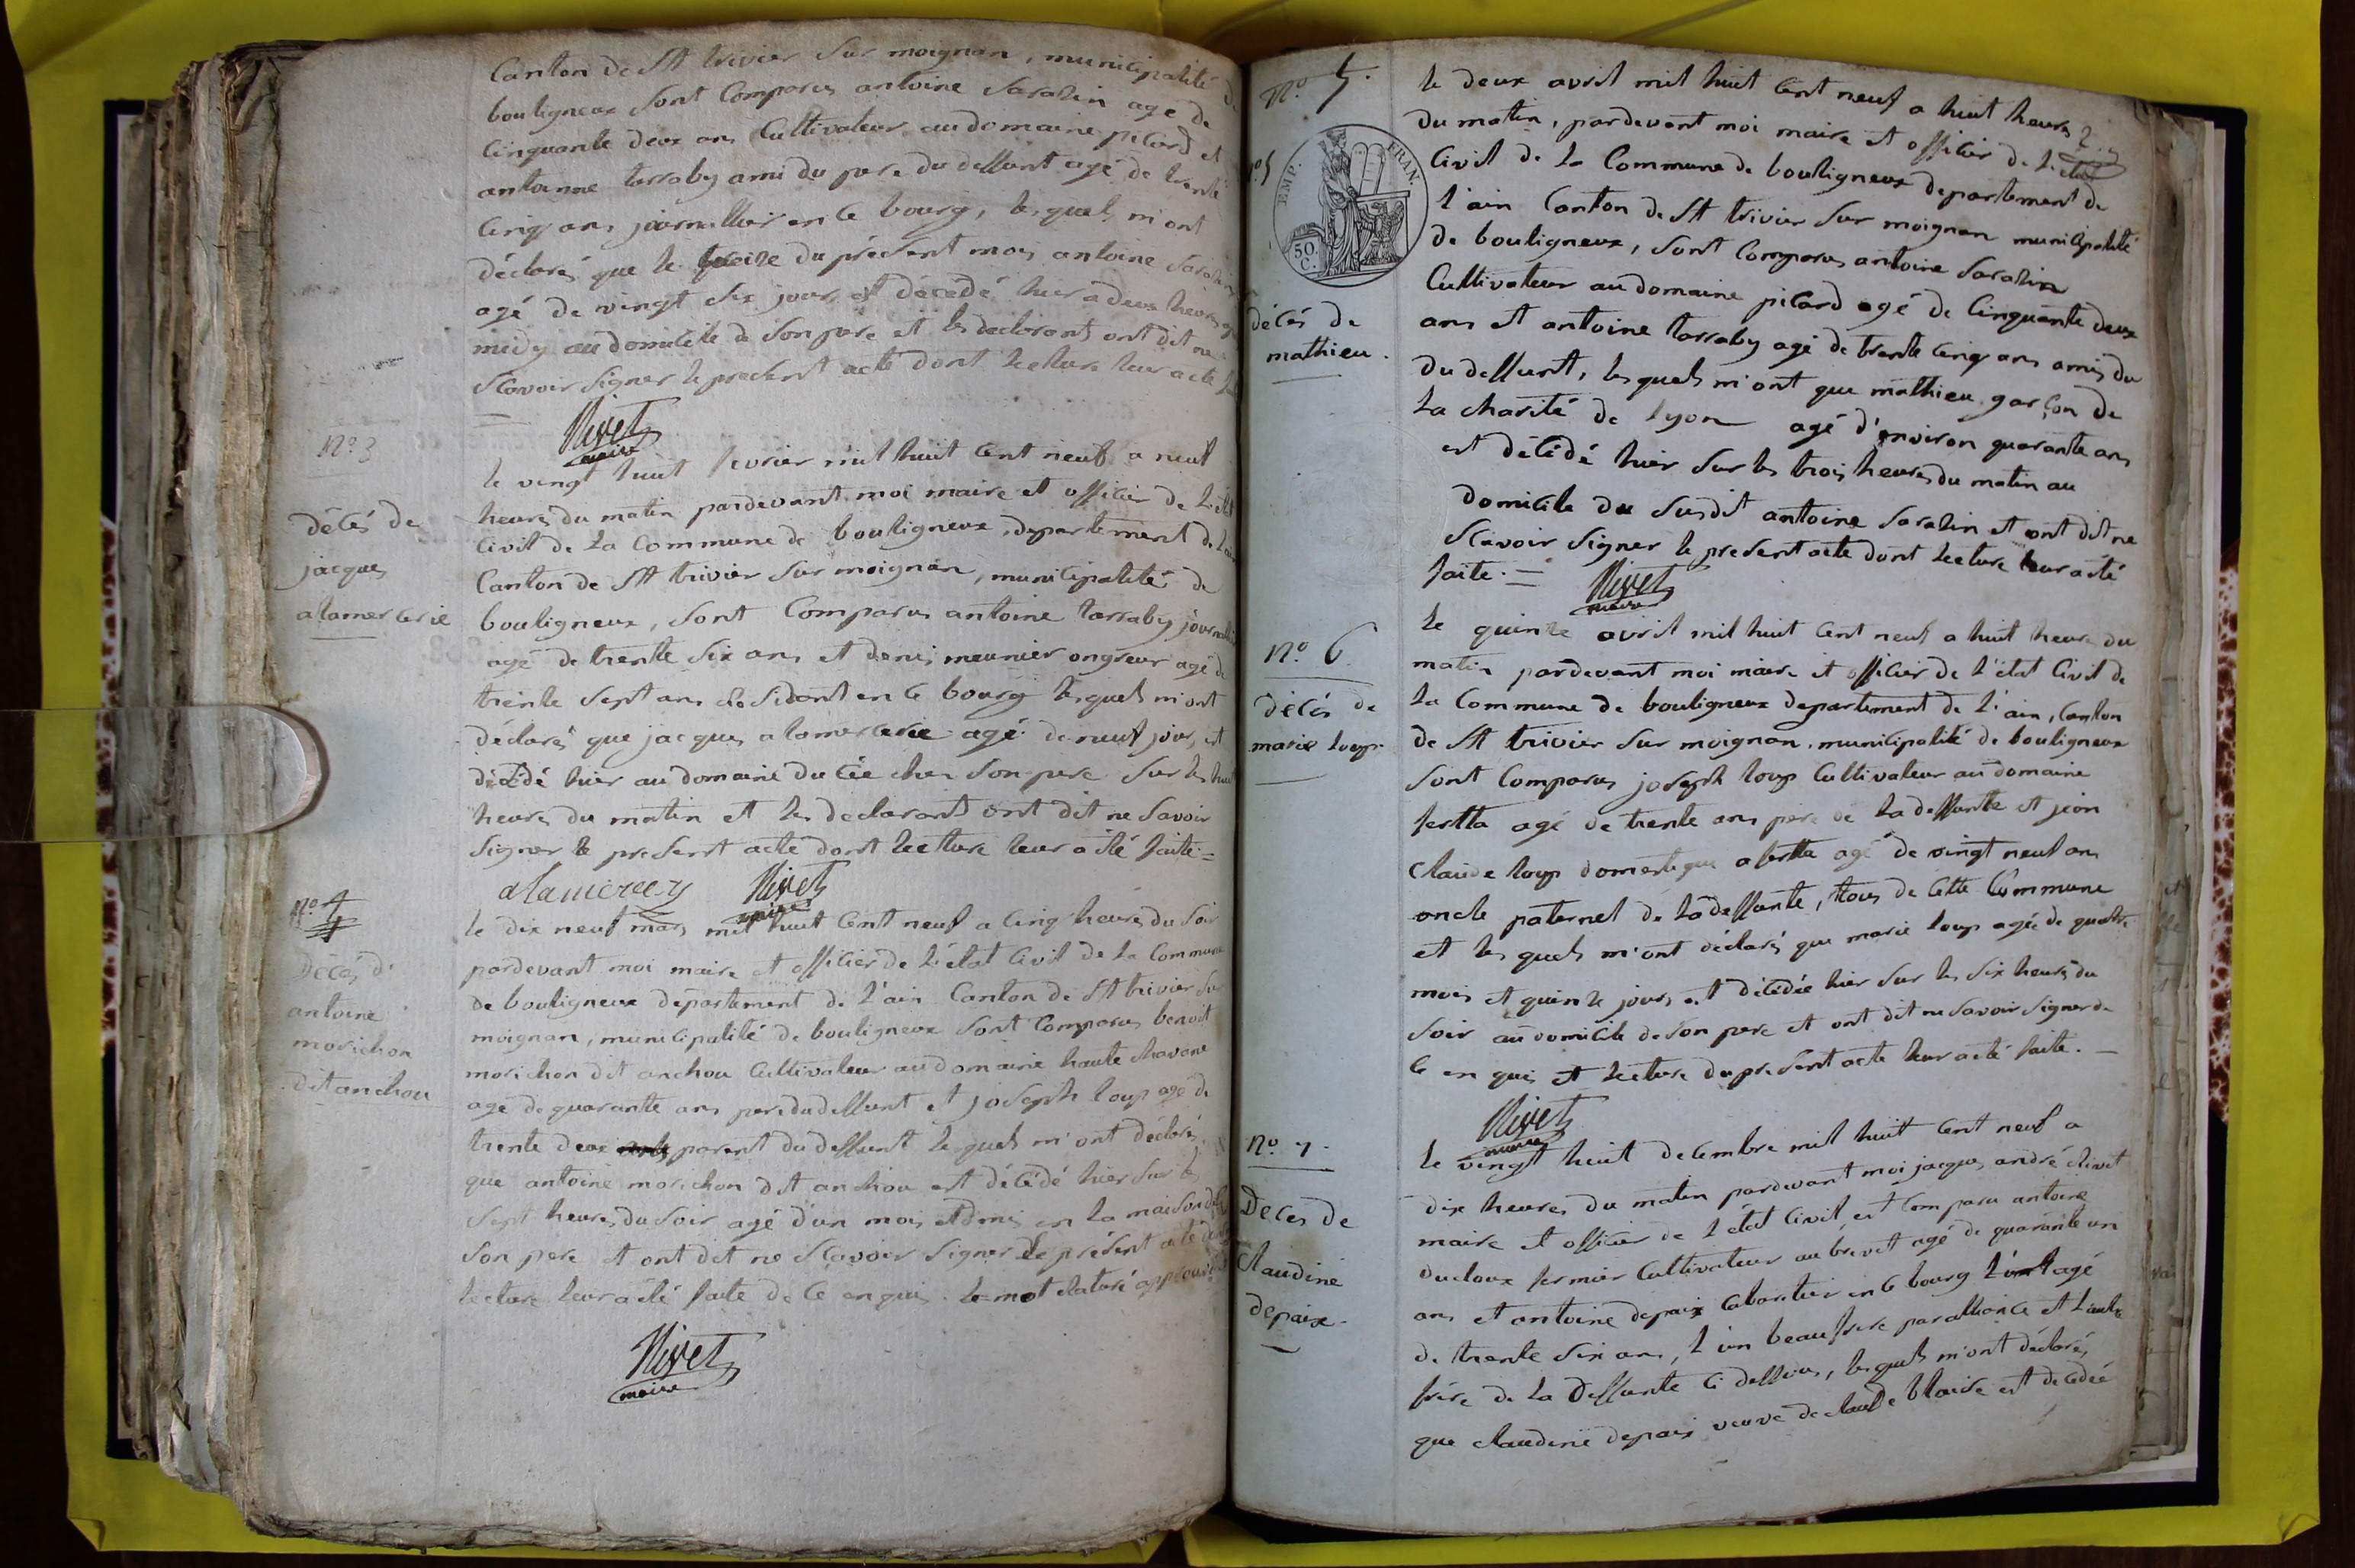 Canton de St trivier sur moignan, municipalité de
bouligneux sont Comparus antoine Sarazin agé de
Cinquante deux ans Cultivateur au domaine picard et
antoinne tarraby ami du pere du deffunt agé de trente
Cinq ans journallier en Ce bourg, lesquels m'ont
déclarés que le treize du présent mois antoine Sarazin
agé de vingt six jours est décédé hier a deux heures
midy au domicile de son pere et les declarants ont dit ne
Scavoir signer le present acte dont lecture leur a eté
Nivet
maire
N.º 3
décès de
jacques
alamercerie
le vingt huit fevrier mil huit Cent neuf a neuf
heures du matin pardevant moi maire et officier de l'état
Civil de la Commune de bouligneux, departement de l'ain
Canton de St trivier sur moignan, municipalité de
bouligneux, sont Comparus antoine tarraby journallier
agé de trente six ans et denis meunier ongreur agé de
trente sept ans residant en Ce bourg lesquels m'ont
déclarés que jacques alamercerie agé de neuf jours, est
décédé hier au domaine du Cée chez son pere sur les huit
heures du matin et les declarants ont dit ne savoir
signer le present acte dont lecture leur a été faite =
alamercery Nivet
maire
N.º 4
4
Décès d'
antoine
morichon
dit anchou
le dix neuf mars mil huit Cent neuf a Cinq heures du soir
pardevant moi maire et officier de l'état Civil de la Commune
de bouligneux departement de l'ain Canton de St trivier sur
moignan, municipalité de bouligneux sont Comparus benoit
morichon dit anchou Cultivateur au domaine haute chavane
agé de quarante ans pere du deffunt et joseph loup agé de
trente deux parent du deffunt lesquels m'ont déclarés
que antoine morichon dit anchou est décédé hier sur les
sept heures du soir agé d'un mois et demi en la maison de
son pere et ont dit ne scavoir signer le présent acte dont
lecture leur a été faite de Ce enquis. le mot raturé approuvé
Nivet
maire
N.º 5.
n.º 5
EMP. FRAN.
50. C.
décès de
mathieu.
2.
le deux avril mil huit Cent neuf a huit heures
du matin, pardevant moi maire et officier de l'état
Civil de la Commune de bouligneux departement de
l'ain Canton de St trivier sur moignan municipalité
de bouligneux, sont Comparus antoine Sarazin
Cultivateur au domaine picard agé de Cinquante deux
ans et antoine tarraby agé de trente Cinq ans amis du
du deffunt, lesquels m'ont que mathieu garçon de
la charité de lyon agé d'environ quarante ans
est décédé hier sur les trois heures du matin au
domicile du susdit antoine Sarazin et ont dit ne
Scavoir signer le present acte dont lecture leur a été
faite. = Nivet
maire
N.º 6
décès de
marie loup.
le quinze avril mil huit Cent neuf a huit heures du
matin pardevant moi maire et officier de l'état Civil de
la Commune de bouligneux departement de l'ain, Canton
de St trivier sur moignan, municipalité de bouligneux
sont Comparus joseph loup Cultivateur au domaine
fertta agé de trente ans pere de la deffunte et jean
Claude loup domestique a fertta agé de vingt neuf ans
oncle paternel de la deffunte, tous de Cette Commune
et lesquels m'ont déclarés que marie loup agée de quatre
mois et quinze jours est décédée hier sur les six heures du
soir au domicile de son pere et ont dit ne savoir signer de
Ce enquis et lecture du present acte leur a été faite. —
Nivet
maire
N.º 7.
Deces de
Claudine
depaix.
le vingt huit decembre mil huit Cent neuf a
dix heures du matin pardevant moi jacques andré Nivet
maire et officier de l'état Civil, est Comparu antoine
ducloux fermier Cultivateur au brevet agé de quarante un
ans et antoine depaix Cabartier en Ce bourg agé
de trente six ans, l'un beau frere par alliance et l'autre
frere de la deffunte Ci dessous, lesquels m'ont déclarés
que claudine depaix veuve de claude blaise est decedée